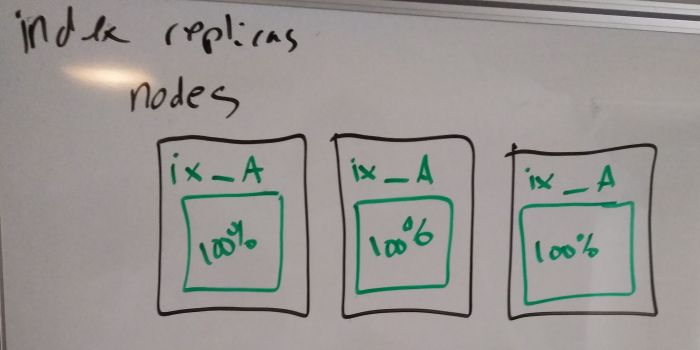 index replicas
nodes
ix_A ix_A ix_A
100% 100% 100%